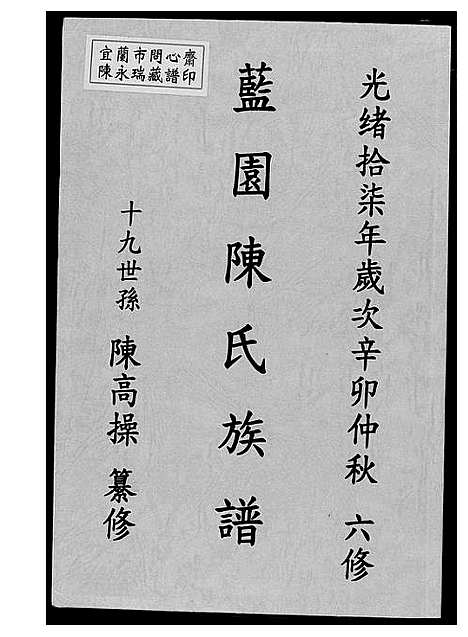 光绪拾柒年歲次辛卯仲秋 六修
藍園陳氏族譜
十九世孫 陳高操 纂修
宜蘭市問心齋
陳永瑞藏譜印